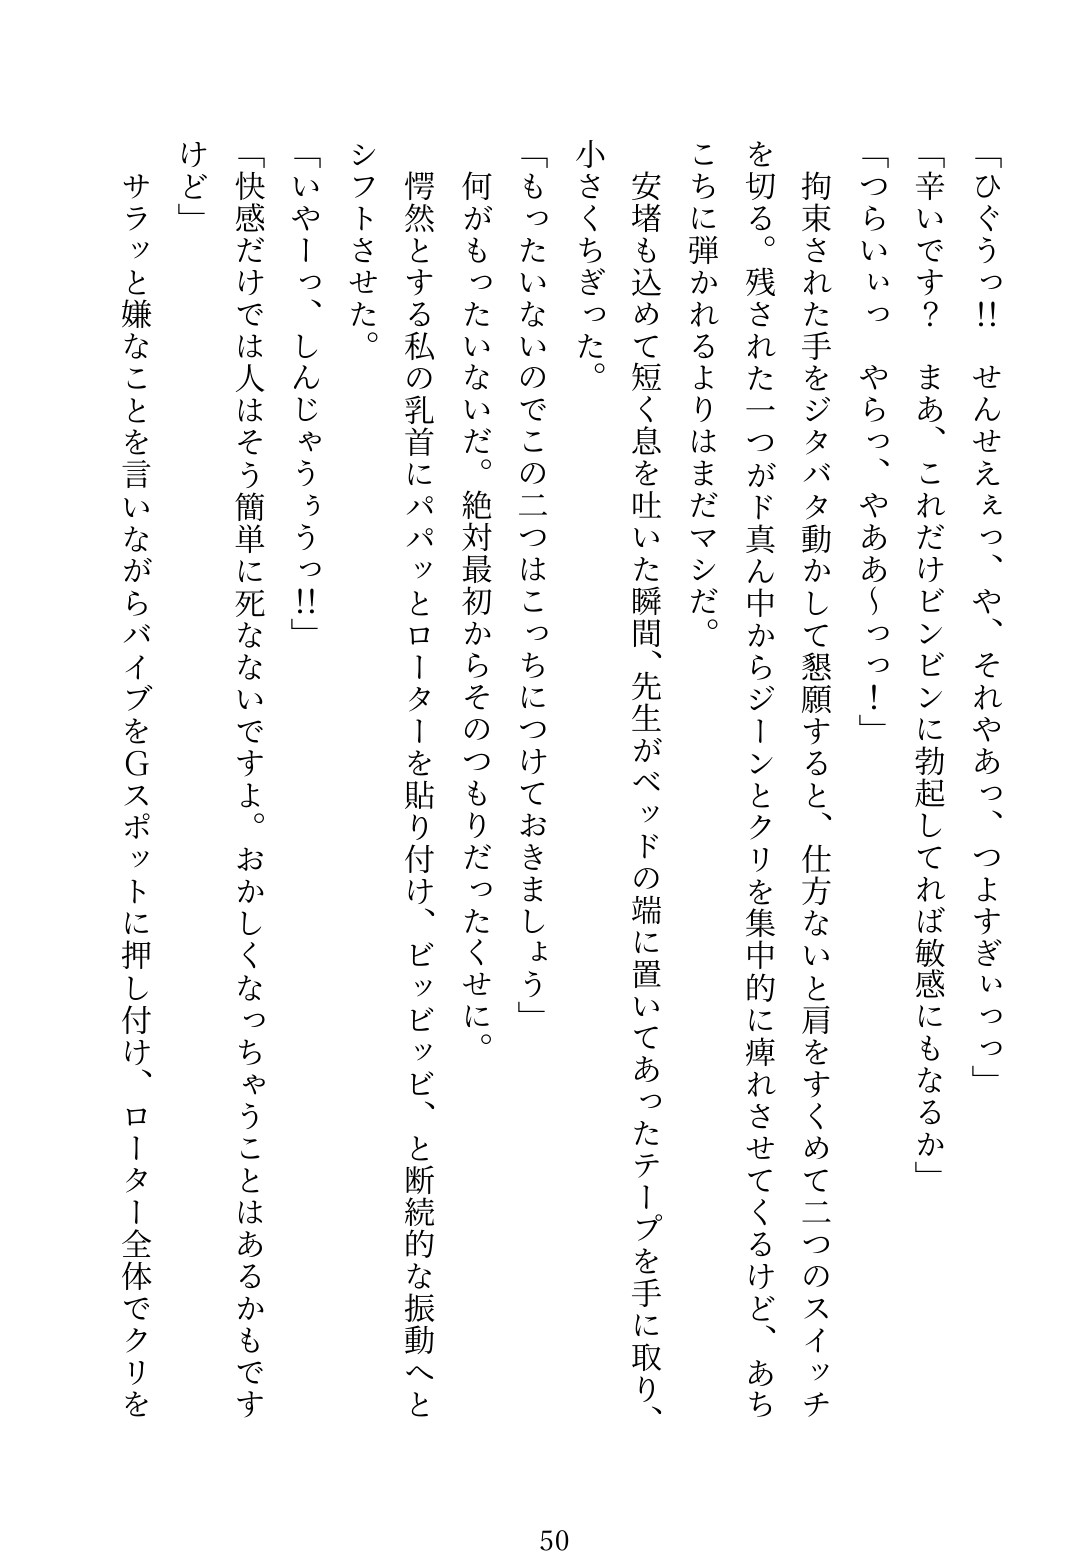 「ひぐうっ!!　せんせえぇっ、や、それやあっ、つよすぎぃっっ」
「辛いです？　まあ、これだけビンビンに勃起してれば敏感にもなるか」
「つらいぃっ　やらっ、やああ～っっ！」
　拘束された手をジタバタ動かして懇願すると、仕方ないと肩をすくめて二つのスイッチ
を切る。残された一つがド真ん中からジーンとクリを集中的に痺れさせてくるけど、あち
こちに弾かれるよりはまだマシだ。
　安堵も込めて短く息を吐いた瞬間、先生がベッドの端に置いてあったテープを手に取り、
小さくちぎった。
「もったいないのでこの二つはこっちにつけておきましょう」
　何がもったいないだ。絶対最初からそのつもりだったくせに。
　愕然とする私の乳首にパパッとローターを貼り付け、ビッビッビ、と断続的な振動へと
シフトさせた。
「いやーっ、しんじゃうぅうっ!!」
「快感だけでは人はそう簡単に死なないですよ。おかしくなっちゃうことはあるかもです
けど」
　サラッと嫌なことを言いながらバイブをＧスポットに押し付け、ローター全体でクリを
50